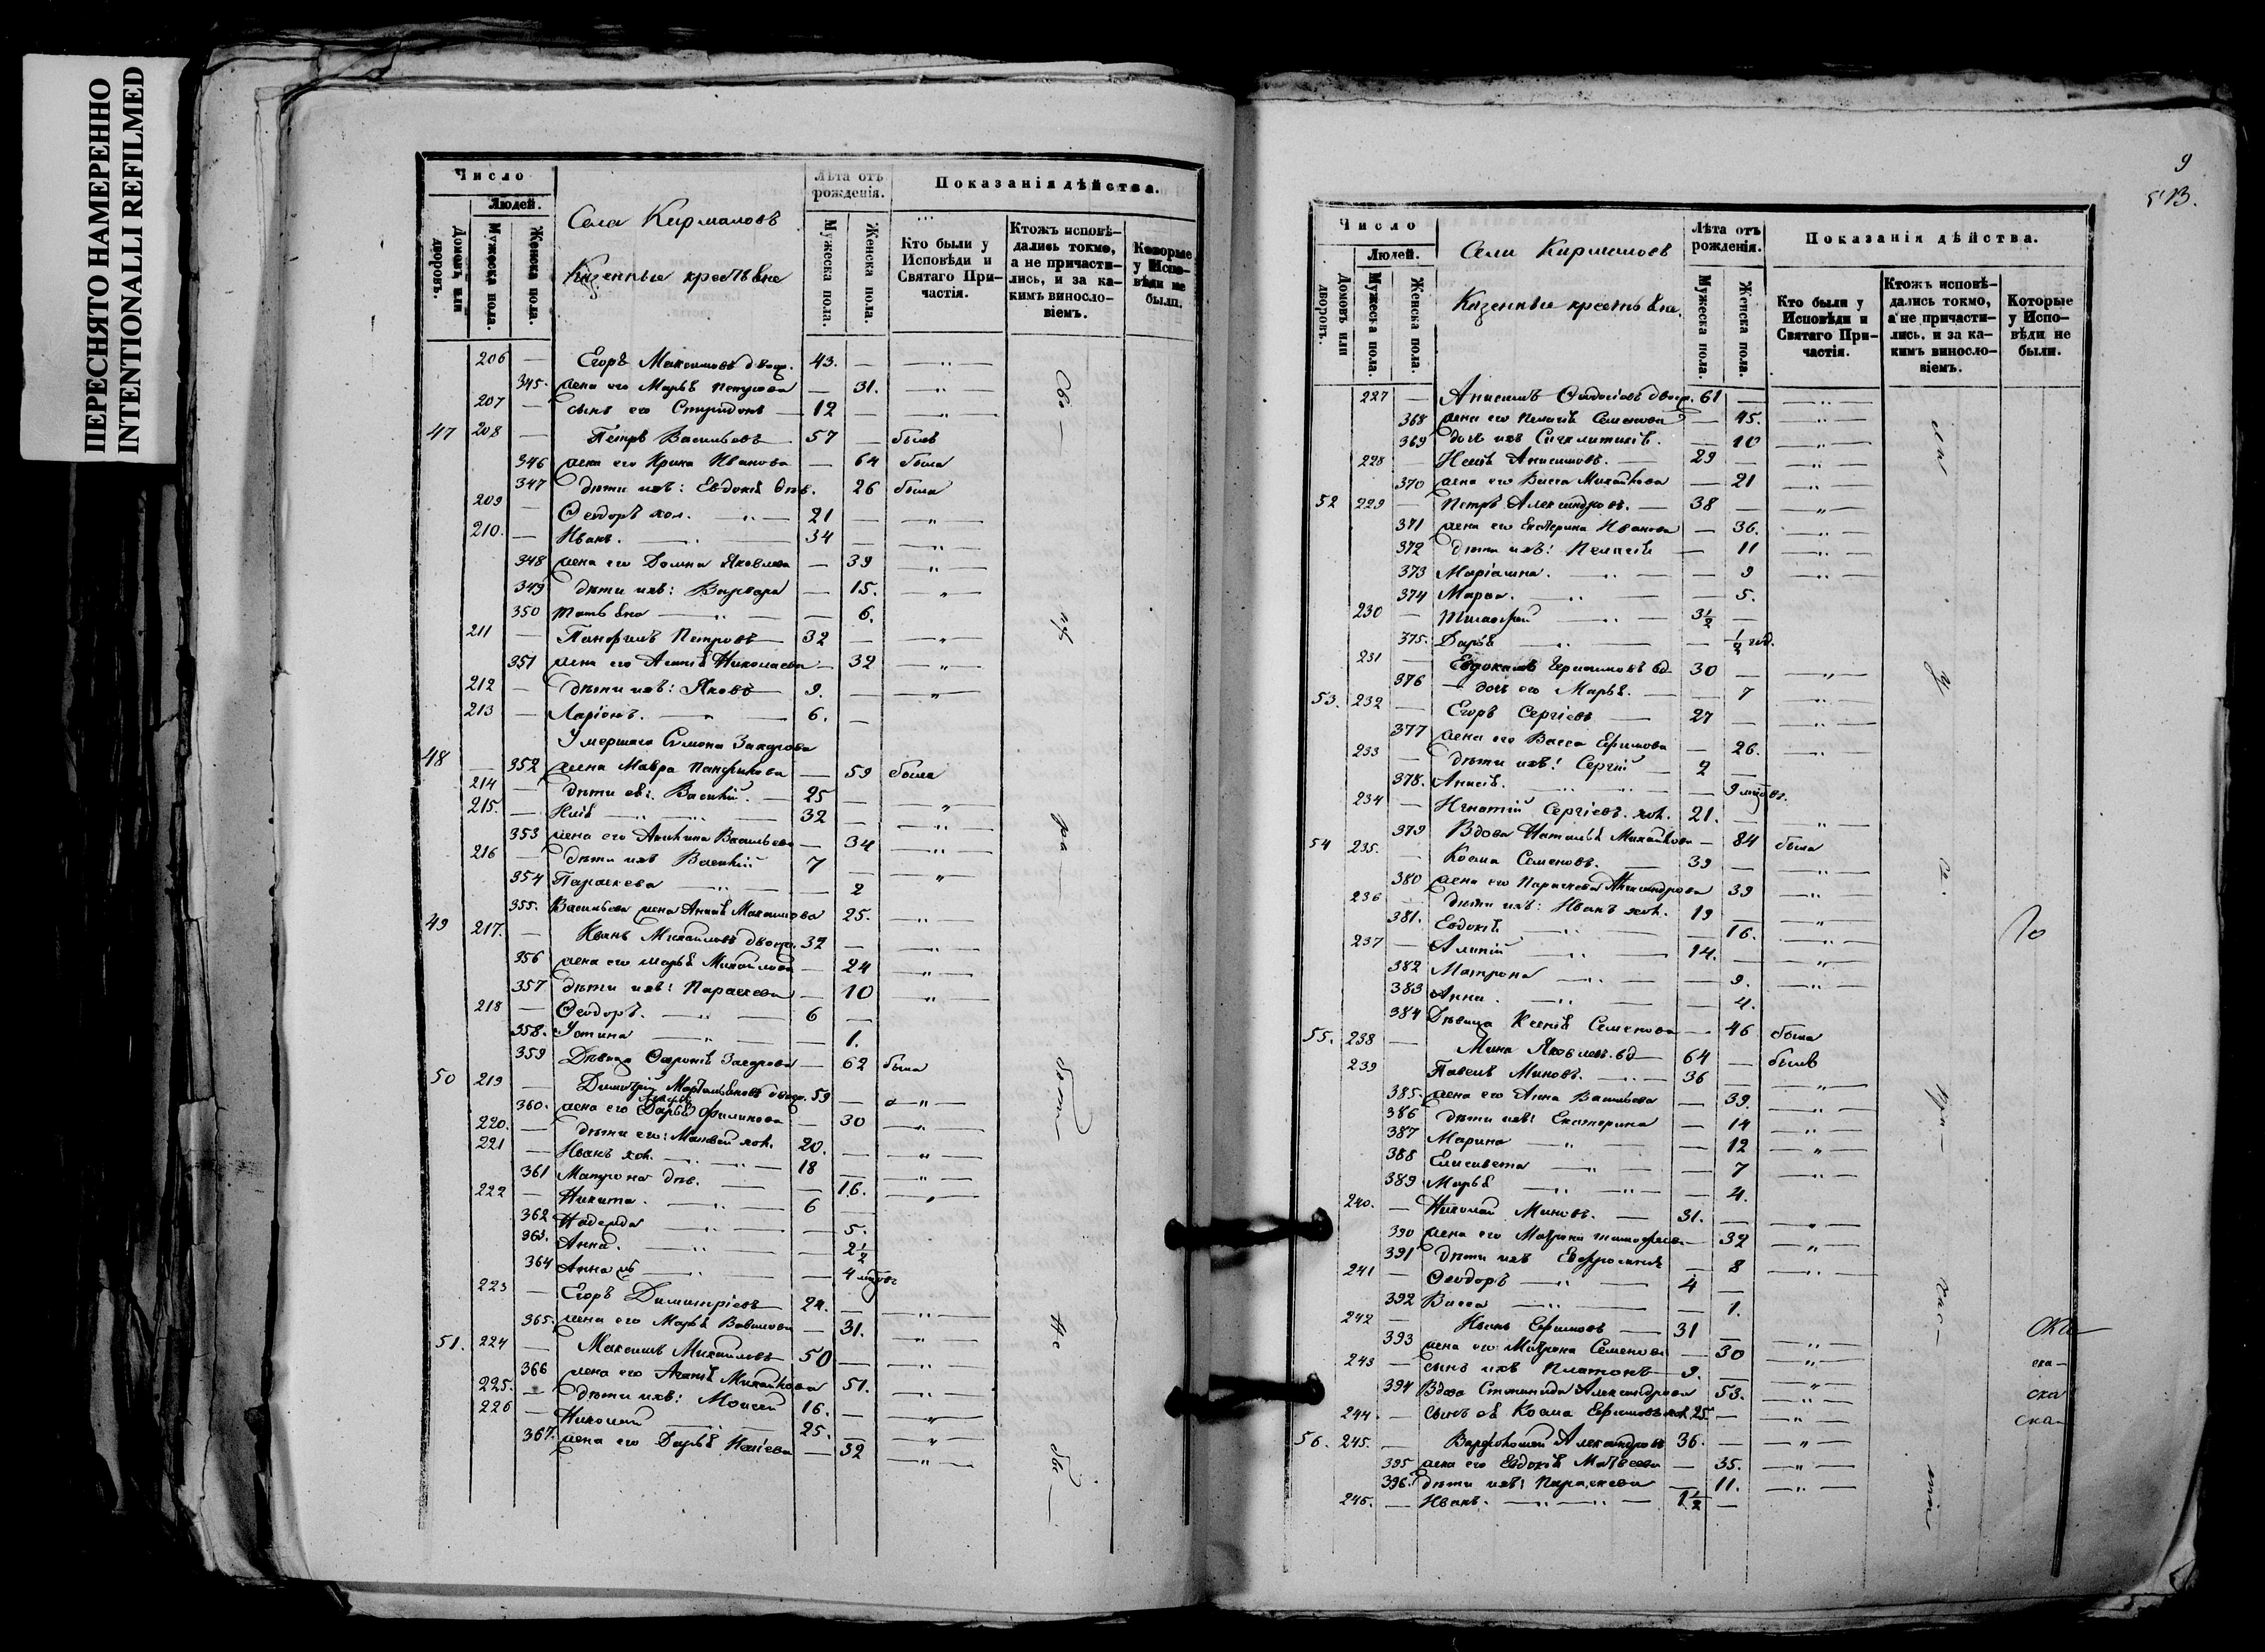 ПЕРЕСНЯТО НАМЕРЕННО
INTENTIONALLI REFILMED
Число
Людей.
Домовъ или дворовъ.
Мужеска пола.
Женска пола.
Села Кирмаловъ
Казенные крестьяне
Лѣта отъ рожденія.
Мужеска пола.
Женска пола.
Показанія дѣйства.
Кто были у Исповѣди и Святаго Причастія.
Ктожъ исповѣдались токмо, а не причастились, и за какимъ винословіемъ.
Которые у Исповѣди не были.
206 — Егоръ Максимовъ 43. — „
345. жена его Марья — 31. „
207 — сынъ его Спиридонъ — 12 —
47 208 — Петръ Васильевъ 57 — былъ
346 жена его Ирина Иванова — 64 была
347 дѣти ихъ: Евдокія дѣв. 26 была
209 — Ѳеодоръ хол. 21 — „
210. — Иванъ. 34 — „
348 жена его Домна Яковлева — 39 „
349 дѣти ихъ: Варвара — 15. „
350 Татьяна — 6.
211 — Панфилъ Петровъ 32 — „
351 жена его Николаева — 32 „
212 — дѣти ихъ: Яковъ 9. — „
213 — Ларіонъ. 6. —
Умершаго Симона Захарова
48 — 352 жена Мавра Панфилова — 59 была
214 — дѣти ея: Василій. 25 — „
215. — Илія 32 „
353 жена его Васильева — 34 „
216 — дѣти ихъ Василій 7 — „
354 Параскева — 2
355. Васильева жена Анна Максимова 25. „
49 217. — Иванъ Михайловъ 32 — „
356 жена его Марья Михайлова — 24 „
357 дѣти ихъ: Параскева — 10 „
218 — Ѳеодоръ. 6 —
358. Устина — 1.
359 Дѣвица Захарова — 62 была
50 219 — Димитрій 59 — „
360. жена его Дарья Филипова — 30 „
220. — дѣти его: Матвей хол. 20. — „
221 — Иванъ хол. 18 — „
361 Матрона дѣв. — 16. „
222 — Никита. 6 —
362 Надежда — 5.
363. Анна. — 2½
364 Анна — 4
223 — Егоръ Димитріевъ 24. — „
365. жена его Марья Вавилова — 31. „
51. 224 — Максимъ Михайловъ 50 — „
366 жена его Михайлова 51. „
225. — дѣти ихъ: Моисей 16. — „
226 — Николай 25. — „
367. жена его Дарья — 32 „
9
513.
Число
Людей.
Домовъ или дворовъ.
Мужеска пола.
Женска пола.
Села Кирмаловъ
Казенные крестьяне.
Лѣта отъ рожденія.
Мужеска пола.
Женска пола.
Показанія дѣйства.
Кто были у Исповѣди и Святаго Причастія.
Ктожъ исповѣдались токмо, а не причастились, и за какимъ винословіемъ.
Которые у Исповѣди не были.
227 — Анисимъ 61 — „
368 жена его Пелагія Семенова — 45. „
369 дочь ихъ — 10 „
228 — Анисимовъ. 29 — „
370 жена его Васса Михайлова — 21 „
52 229 — Петръ Александровъ. 38 — „
371 жена его Екатерина Иванова — 36. „
372 дѣти ихъ: Пелагія — 11 „
373 Маріамна. — 9 „
374 Марѳа. — 5.
230 — Тимофей 3½ —
375. Дарья — ½ год.
231 — Евдокимъ Герасимовъ вд. 30 — „
376 дочь его Марья. — 7 „
53. 232 — Егоръ Сергіевъ 27 — „
377 жена его Васса Ефимова — 26. „
233 — дѣти ихъ: Сергій 2 —
378. — 9
234 — Игнатій Сергіевъ. хол. 21. — „
379 Вдова Наталья Михайлова — 84 была
54 235. — Косма Семеновъ. 39 — „
380 жена его Параскева Александрова 39 „
236 — дѣти ихъ: Иванъ хол. 19 — „
381. Евдокія — 16. „
237 — Алипій 14. — „
382 Матрона — 9. „
383 Анна. — 4.
384 Дѣвица Ксенія Семенова — 46 была
55. 238 — Мина Яковлевъ. вд 64 — былъ
239 Павелъ Миновъ. 36 — „
385. жена его Анна Васильева — 39. „
386 дѣти ихъ: Екатерина — 14 „
387 Марина — 12 „
388 Елисавета — 7 „
389 Марья — 4.
240. — Николай Миновъ. 31. — „
390 жена его Матрона — 32 „
391 дѣти ихъ Евфросинія — 8 „
241 — Ѳеодоръ 4 —
392 Васса — 1.
242 — Иванъ Ефимовъ 31 — „
393 жена его Матрона Семенова — 30 „
243 — сынъ ихъ Платонъ 9. — „
394 Вдова Степанида Александрова 53. „
244. — сынъ ея Косма Ефимовъ хол. 25. — „
56. 245. — Варфоломей Александровъ 36. — „
395 жена его Евдокія Матвеева — 35. „
396. дѣти ихъ: Параскева — 11. „
246. — Иванъ. 1½ —